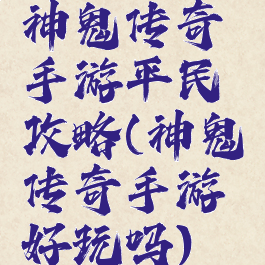 神鬼传奇
手游平民
攻略(神鬼
传奇手游
好玩吗)